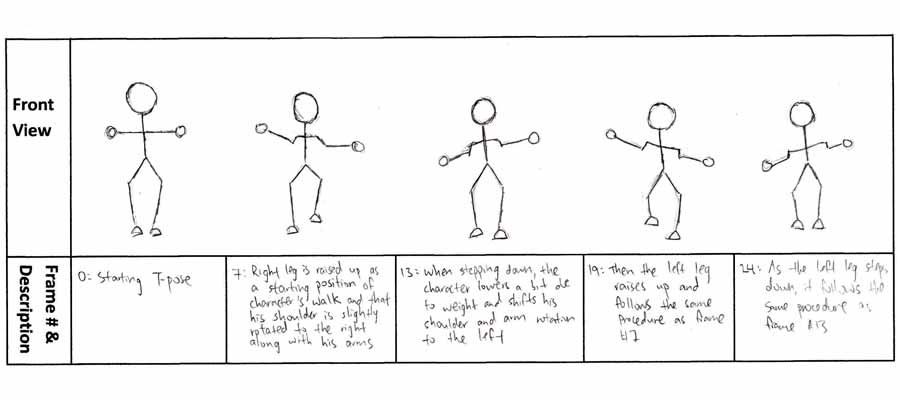 Front
View
Frame # &
Description
0: Starting T-pose
7: Right leg is raised up as
a starting position of
character's walk and that
his shoulder is slightly
rotated to the right
along with his arms
13: when stepping down, the
character lowers a bit due
to weight and shifts his
shoulder and arm rotation
to the left
19: Then the left leg
raises up and
follows the same
procedure as frame
#7
24: As the left leg steps
down, it follows the
same procedure as
frame #13